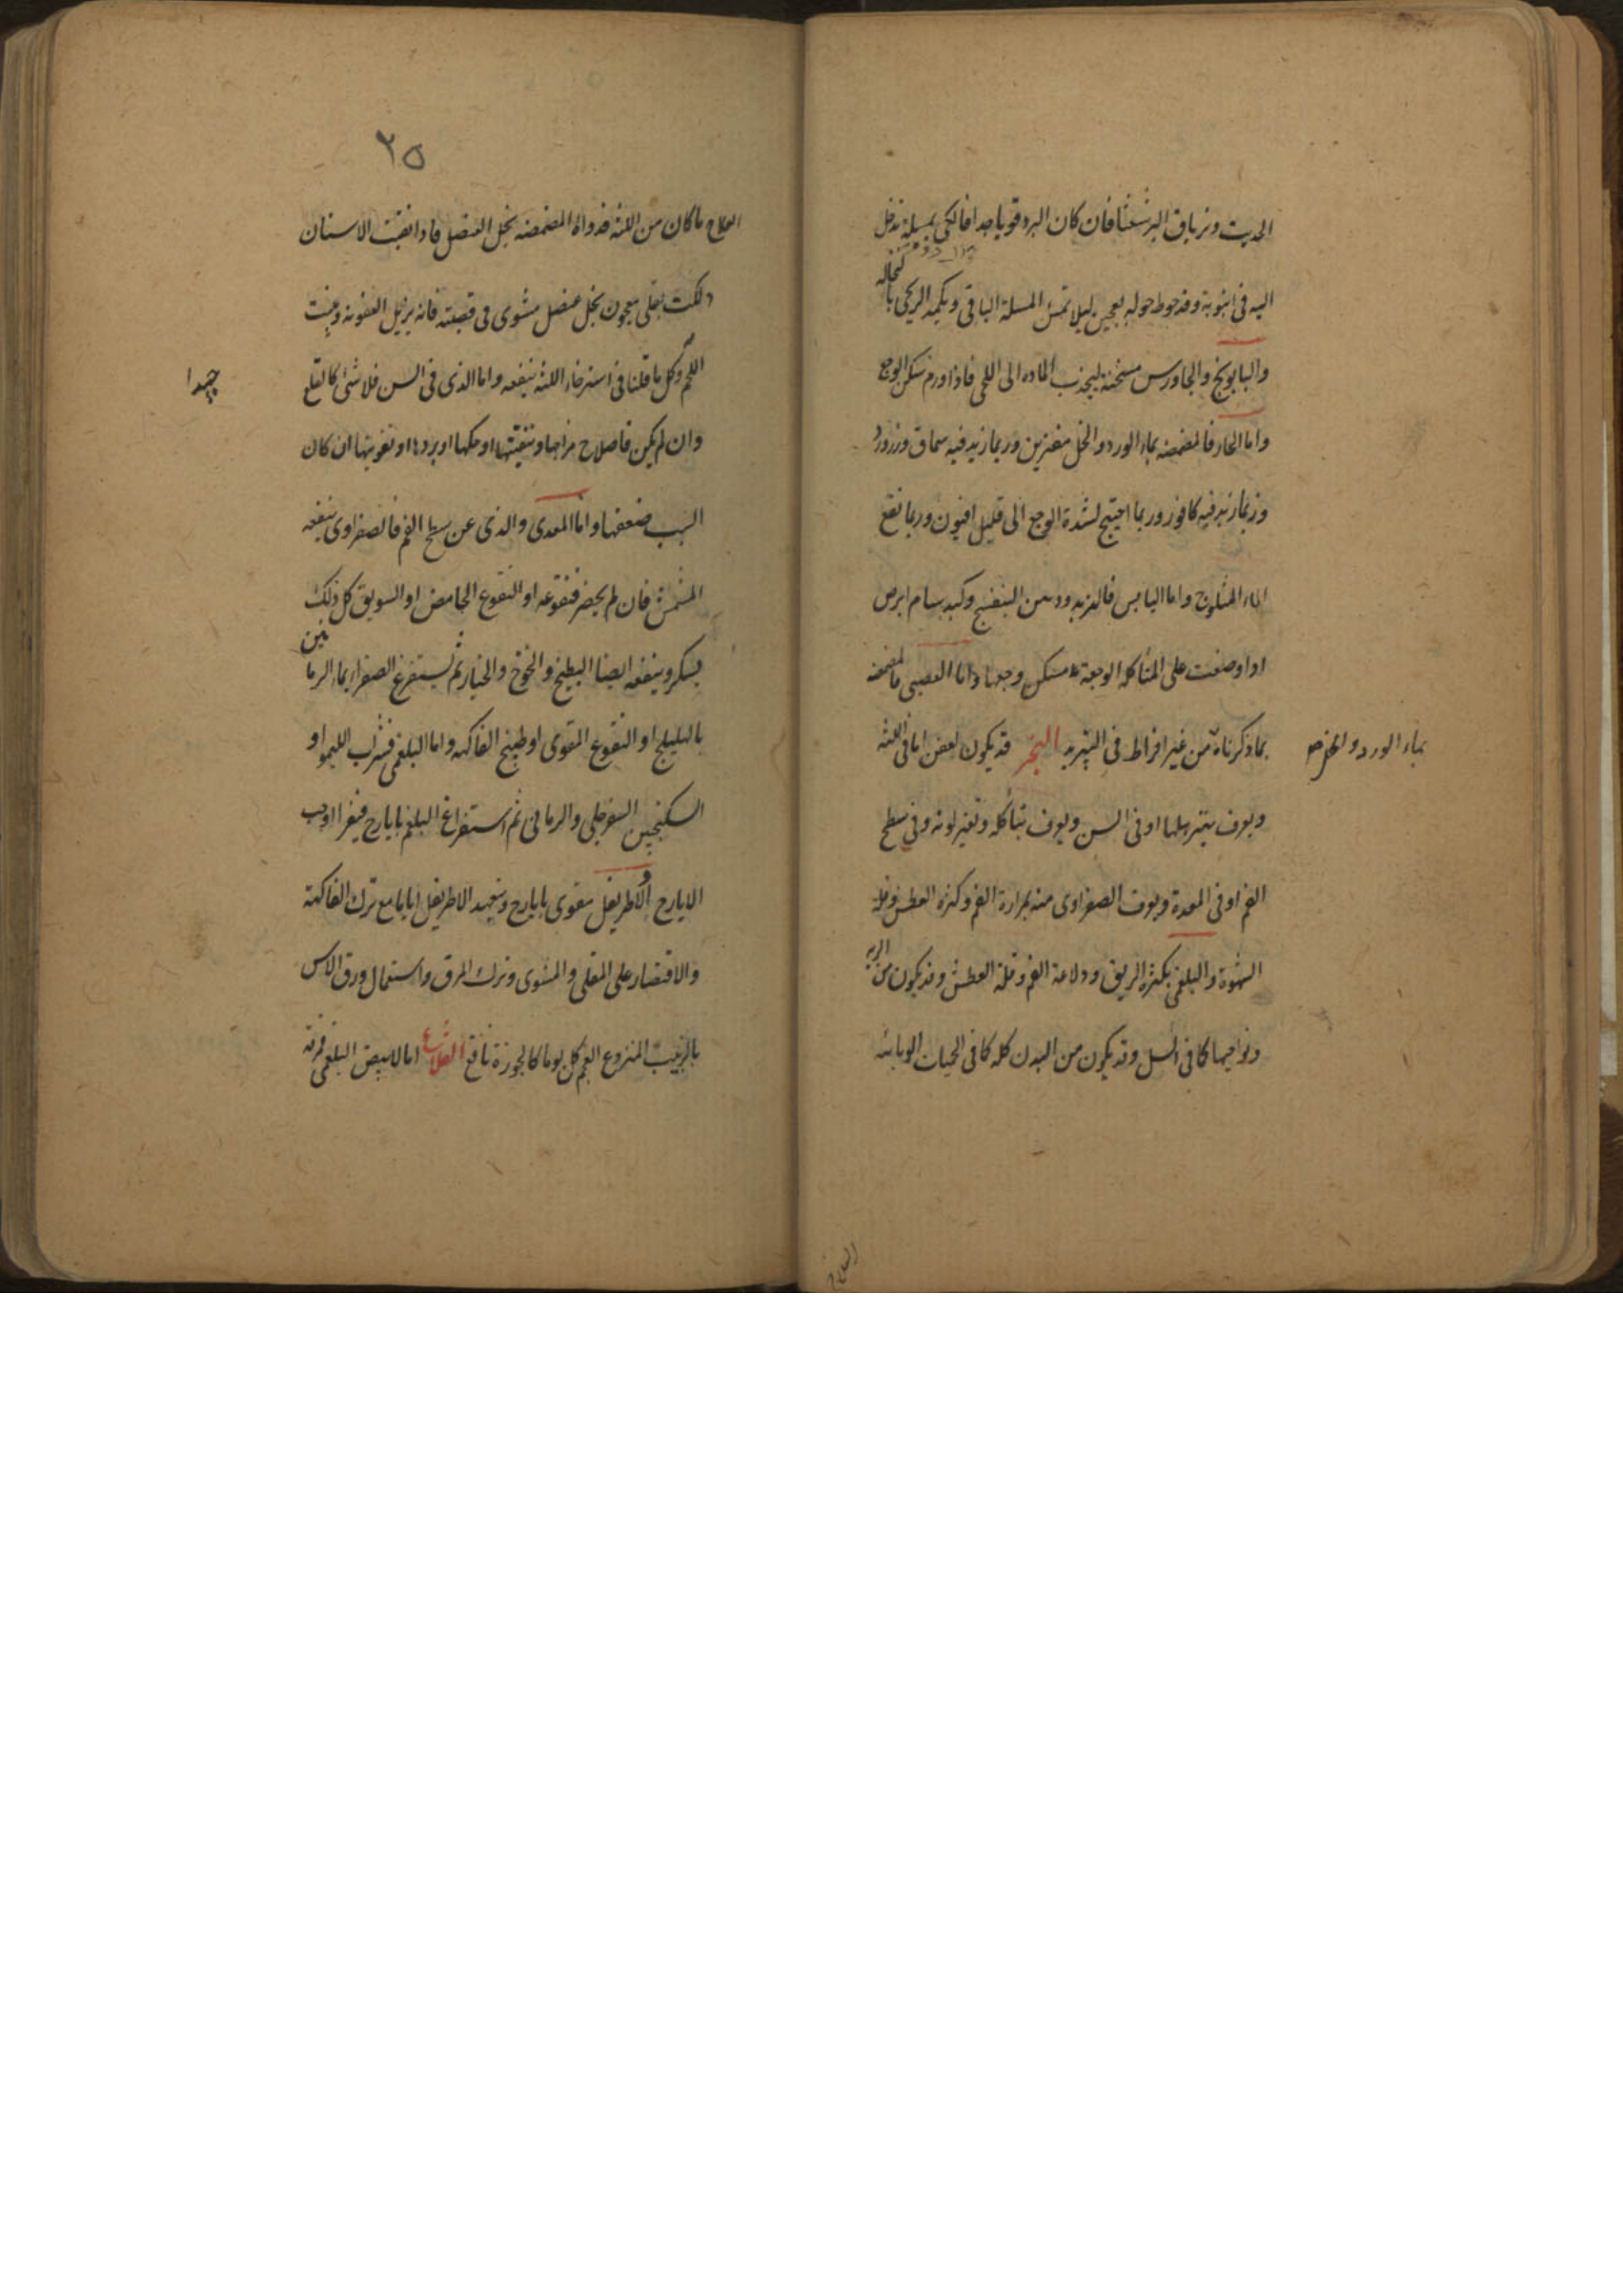 الحديث وترياق البرشعثا فان كان البرد قويا جدا فالكي بمسلة تدخل
اليه في انبوبة وقد حوط حوله بعجين ليلا تمس المسلة الباقي ويكمد الريحي بالنخاله
والبابونج والجاورس مسخنة ليجذب الماده الى اللحى فاذا ورم سكن الوجع
واما الحار فالمضمضه بماء الورد والخل مفترين وربما زيد فيه سماق وزرورد
وربما زيد فيه كافور وربما احتيج لشدة الوجع الى قليل افيون وربما نفع
الماء المثلوج واما اليابس فالزبد ودهن البنفسج وكبد سام ابرص
اذا وضعت على المتأكله الوجعة سكن وجعها واما العصبي فالمضمضه
بما ذكرناه من غير افراط في التبريد البخر قد يكون لعفن اما في اللثه
بماء الورد والخل
ويعرف بتبريلها او في السن ويعرف بتأكله وتغير لونه وفي سطح
الفم او في المعدة ويعرف الصفراوى منه بمرارة الفم وكثرة العطش وقلة
الشهوة والبلغمي بكثرة الريق ودلاعة الفم وقلة العطش وقد يكون من الريه
ونواحيها كما في السل وقد يكون من البدن كله كما في الحميات الوبائيه
العلاج
٢٥
العلاج ما كان من اللثه فدواه المضمضه بخل العنصل فاذا نقيت الاسنان
دلكت بقلى معجون بخل عنصل مشوى في قصبته فانه يزيل العفونه وينبت
اللحم وكل ما قلنا في استرخاء اللثه ينفعه واما الذى في السن فلا شئ كالقلع
جيدا
وان لم يكن فاصلاح مزاجها وتنقيتها او حكها او بردها او تقويتها ان كان
السبب ضعفها واما المعدى والذى عن سطح الفم فالصفراوى ينفعه
المشمش فان لم يحضر فنقوعه او النقوع الحامض او السويق كل ذلك
بسكر وينفعه ايضا البطيخ والخوخ والخيار ثم يستفرغ الصفراء بماء الرمانين
بالهليلج او النقوع المقوى او طبيخ الفاكهه واما البلغمي فشراب الليمو او
السكنجبين السفرجلي والرماني ثم استفراغ البلغم بايارج فيقرا او حب
الايارج والاطريفل مقوى بايارج وتعهد الاطريفل اياما مع ترك الفاكهة
والاقتصار على المقلى والمشوى وترك المرق واستعمال ورق الاس
بالزبيب المنزوع العجم كل يوم كالجوزة نافع القلاع اما الابيض البلغمي